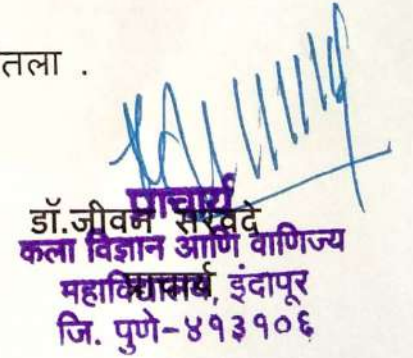 तला .
प्राचार्य
डॉ.जीवन सरवदे
कला विज्ञान आणि वाणिज्य
महाविद्यालय, इंदापूर
प्राचार्य
जि. पुणे-४१३१०६